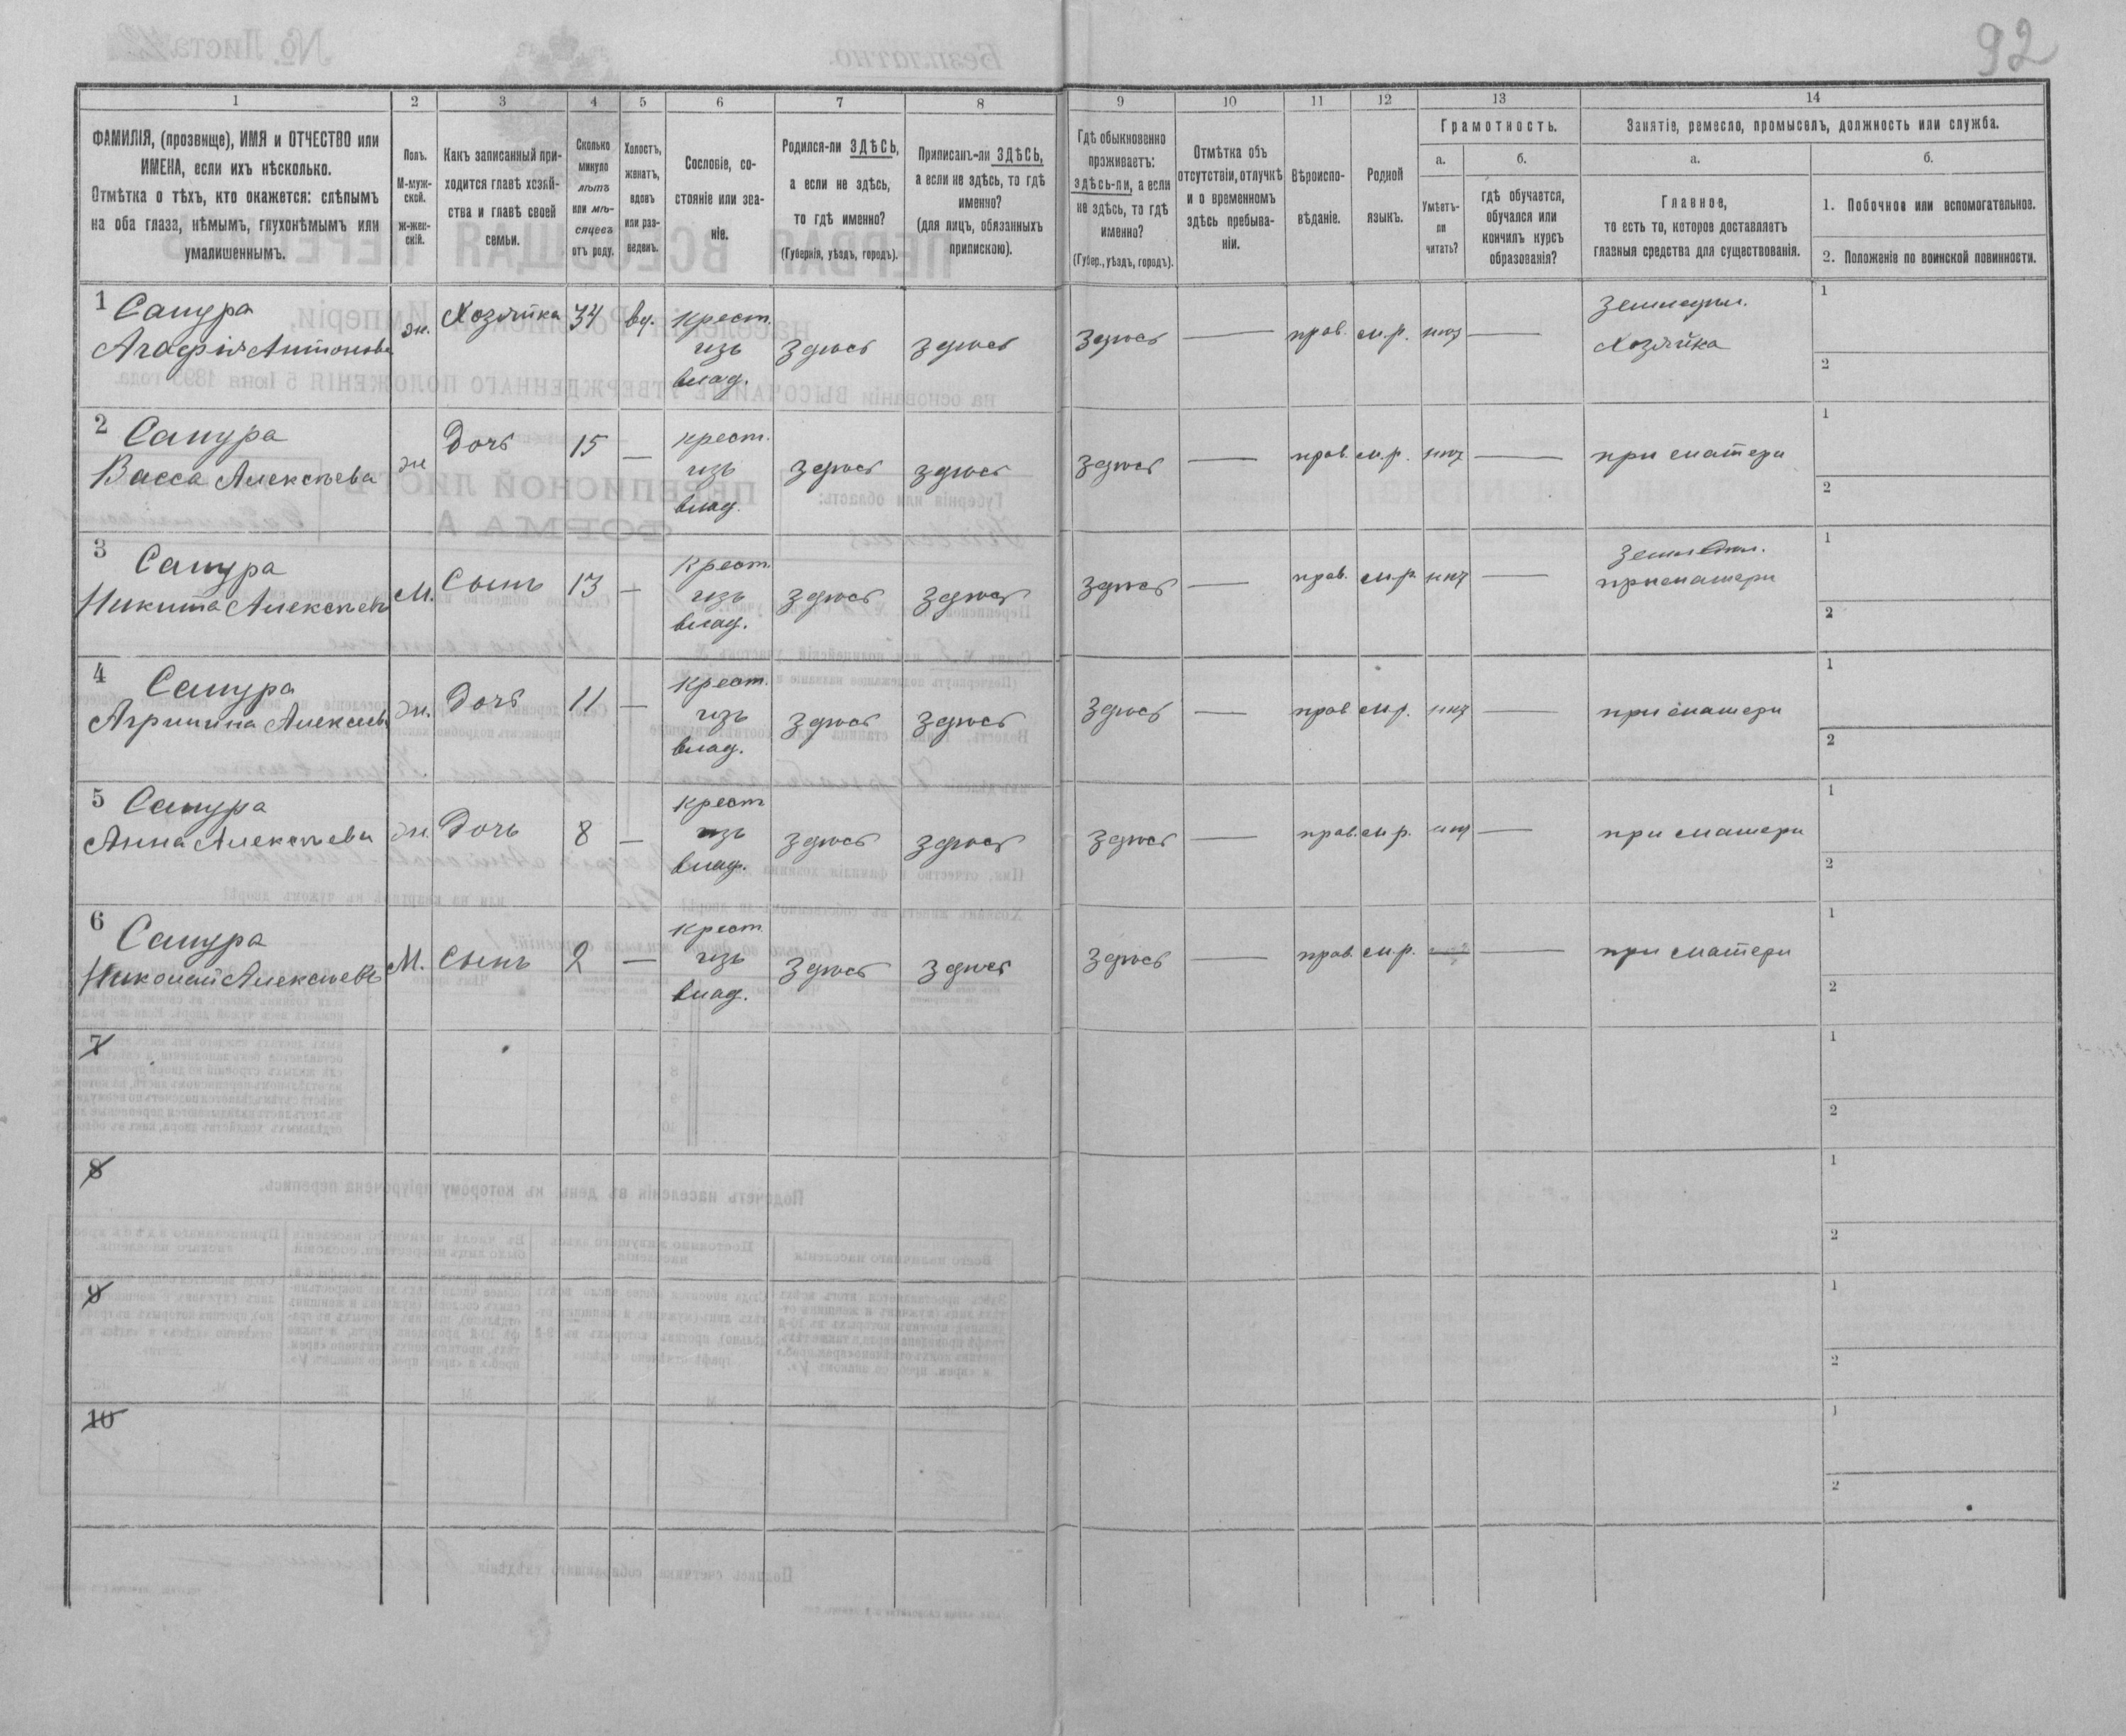 92
1
2
3
4
5
6
7
8
9
10
11
12
13
14
ФАМИЛІЯ, (прозвище), ИМЯ и ОТЧЕСТВО или
ИМЕНА, если ихъ нѣсколько.
Отмѣтка о тѣхъ, кто окажется: слѣпымъ
на оба глаза, нѣмымъ, глухонѣмымъ или
умалишеннымъ.
Полъ.
М-муж-
ской.
ж-жен-
скій.
Какъ записанный при-
ходится главѣ хозяй-
ства и главѣ своей
семьи.
Сколько
минуло
лѣтъ
или мѣ-
сяцевъ
отъ роду.
Холостъ,
женатъ,
вдовъ
или раз-
веденъ.
Сословіе, со-
стояніе или зва-
ніе.
Родился-ли ЗДѢСЬ,
а если не здѣсь,
то гдѣ именно?
(Губернія, уѣздъ, городъ).
Приписанъ-ли ЗДѢСЬ,
а если не здѣсь, то гдѣ
именно?
(для лицъ, обязанныхъ
припискою).
Гдѣ обыкновенно
проживаетъ:
здѣсь-ли, а если
не здѣсь, то гдѣ
именно?
(Губер., уѣздъ, городъ).
Отмѣтка объ
отсутствіи, отлучкѣ
и о временномъ
здѣсь пребыва-
ніи.
Вѣроиспо-
вѣданіе.
Родной
языкъ.
Грамотность.
а.
Умѣетъ-
ли
читать?
б.
гдѣ обучается,
обучался или
кончилъ курсъ
образованія?
Занятіе, ремесло, промыселъ, должность или служба.
а.
Главное,
то есть то, которое доставляетъ
главныя средства для существованія.
б.
1. Побочное или вспомогательное.
2. Положеніе по воинской повинности.
1 Сапура
Агафія Антонова
ж. Хозяйка 34 вд. крест.
изъ
влад.
здѣсь здѣсь здѣсь — прав. м.р. нѣт —
земледѣл.
Хозяйка
1
2
2 Сапура
Васса Алексѣева
ж Дочь 15 — крест.
изъ
влад.
здѣсь здѣсь здѣсь — прав. м.р. нѣт — при матери
1
2
3 Сапура
Никита Алексѣев
М. Сынъ 13 — крест.
изъ
влад.
здѣсь здѣсь здѣсь — прав. м.р. нѣт —
земледѣл.
при матери
1
2
4 Сапура
Агрипина Алексѣева
ж. Дочь 11 — крест.
изъ
влад.
здѣсь здѣсь здѣсь — прав м.р. нѣт — при матери
1
2
5 Сапура
Анна Алексѣева
ж. Дочь 8 — крест
изъ
влад.
здѣсь здѣсь здѣсь — прав. м.р. нѣт — при матери
1
2
6 Сапура
Николай Алексѣевъ
М. Сынъ 2 — крест
изъ
влад.
здѣсь здѣсь здѣсь — прав. м.р. — при матери
1
2
7
1
2
8
1
2
9
1
2
10
1
2